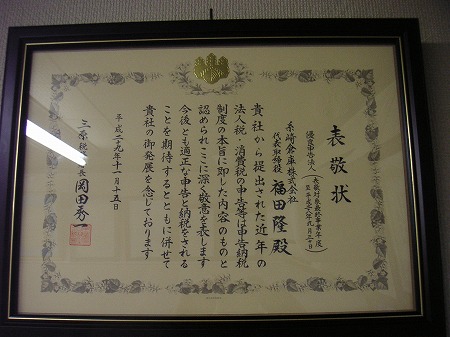 表敬状
優良申告法人
表敬対象最終事業年度
糸崎倉庫株式会社
代表取締役 福田隆殿
貴社から提出された近年の
法人税・消費税の申告等は申告納税
制度の本旨に即した内容のものと
認められここに深く敬意を表します
今後とも適正な申告と納税をされる
ことを期待するとともに併せて
貴社の御発展を念じております
平成二十九年十一月十五日
三原税務署長 岡田秀一